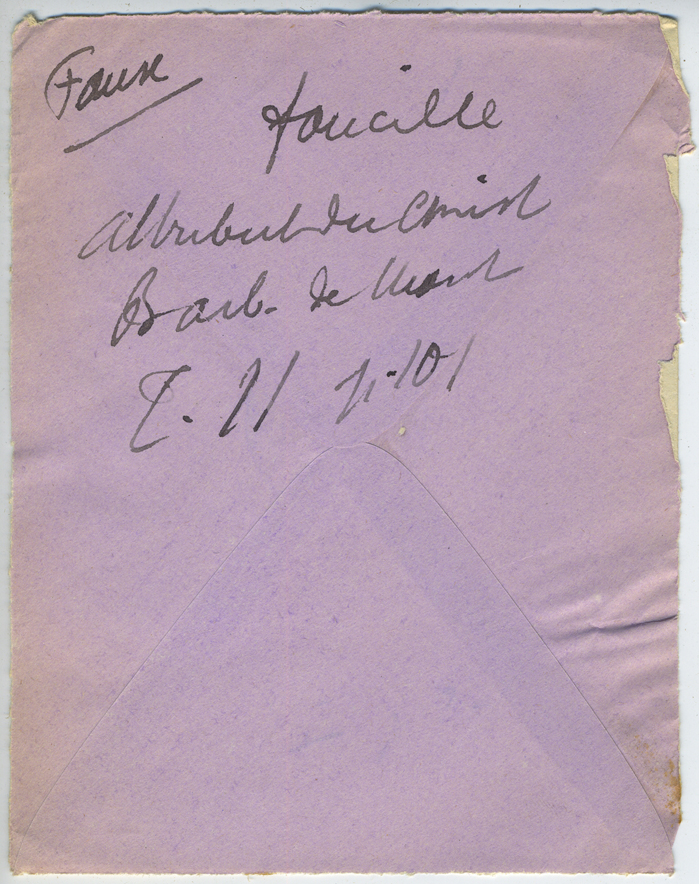 Faux
faucille
Attribut du Christ
Barb. de Mont
T. II p. 101